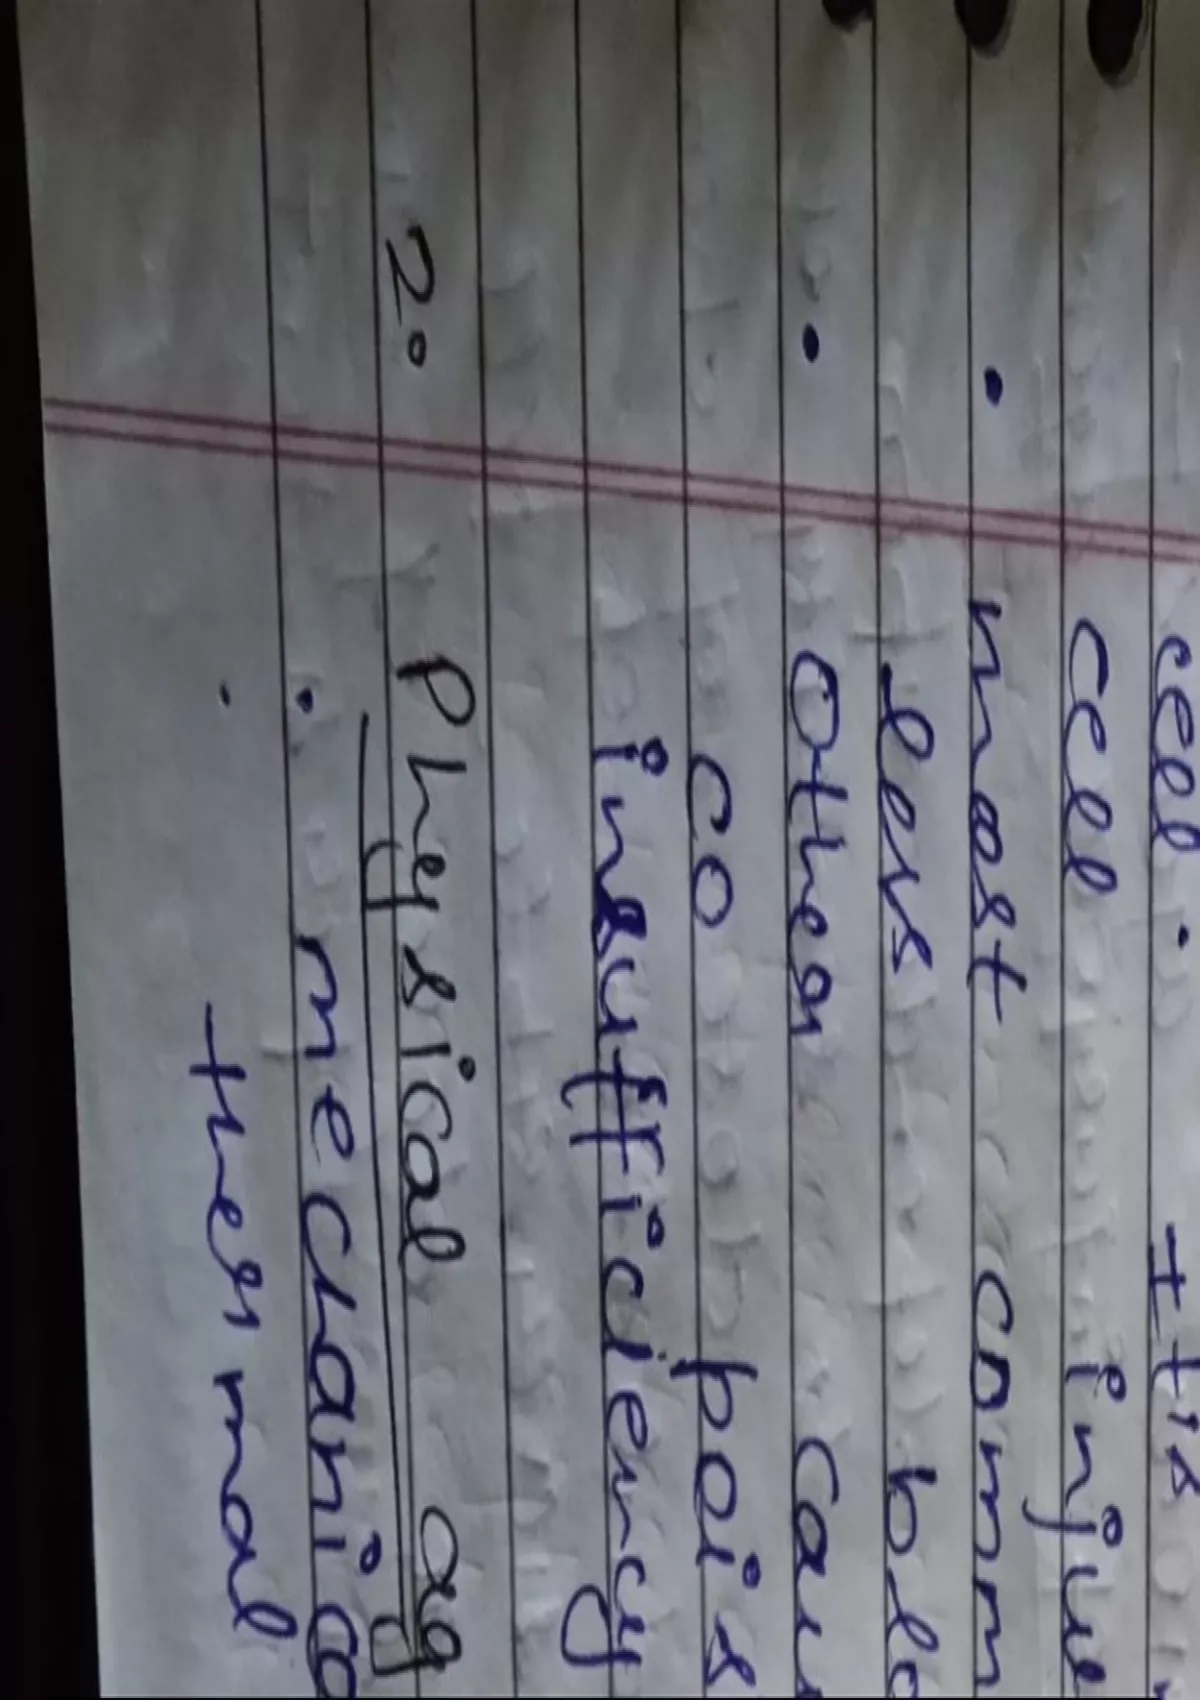 cell. Its
cell inju
• most comm
less blo
• Other cau
CO pois
insufficiency
2. Physical ag
• mechanica
• thermal